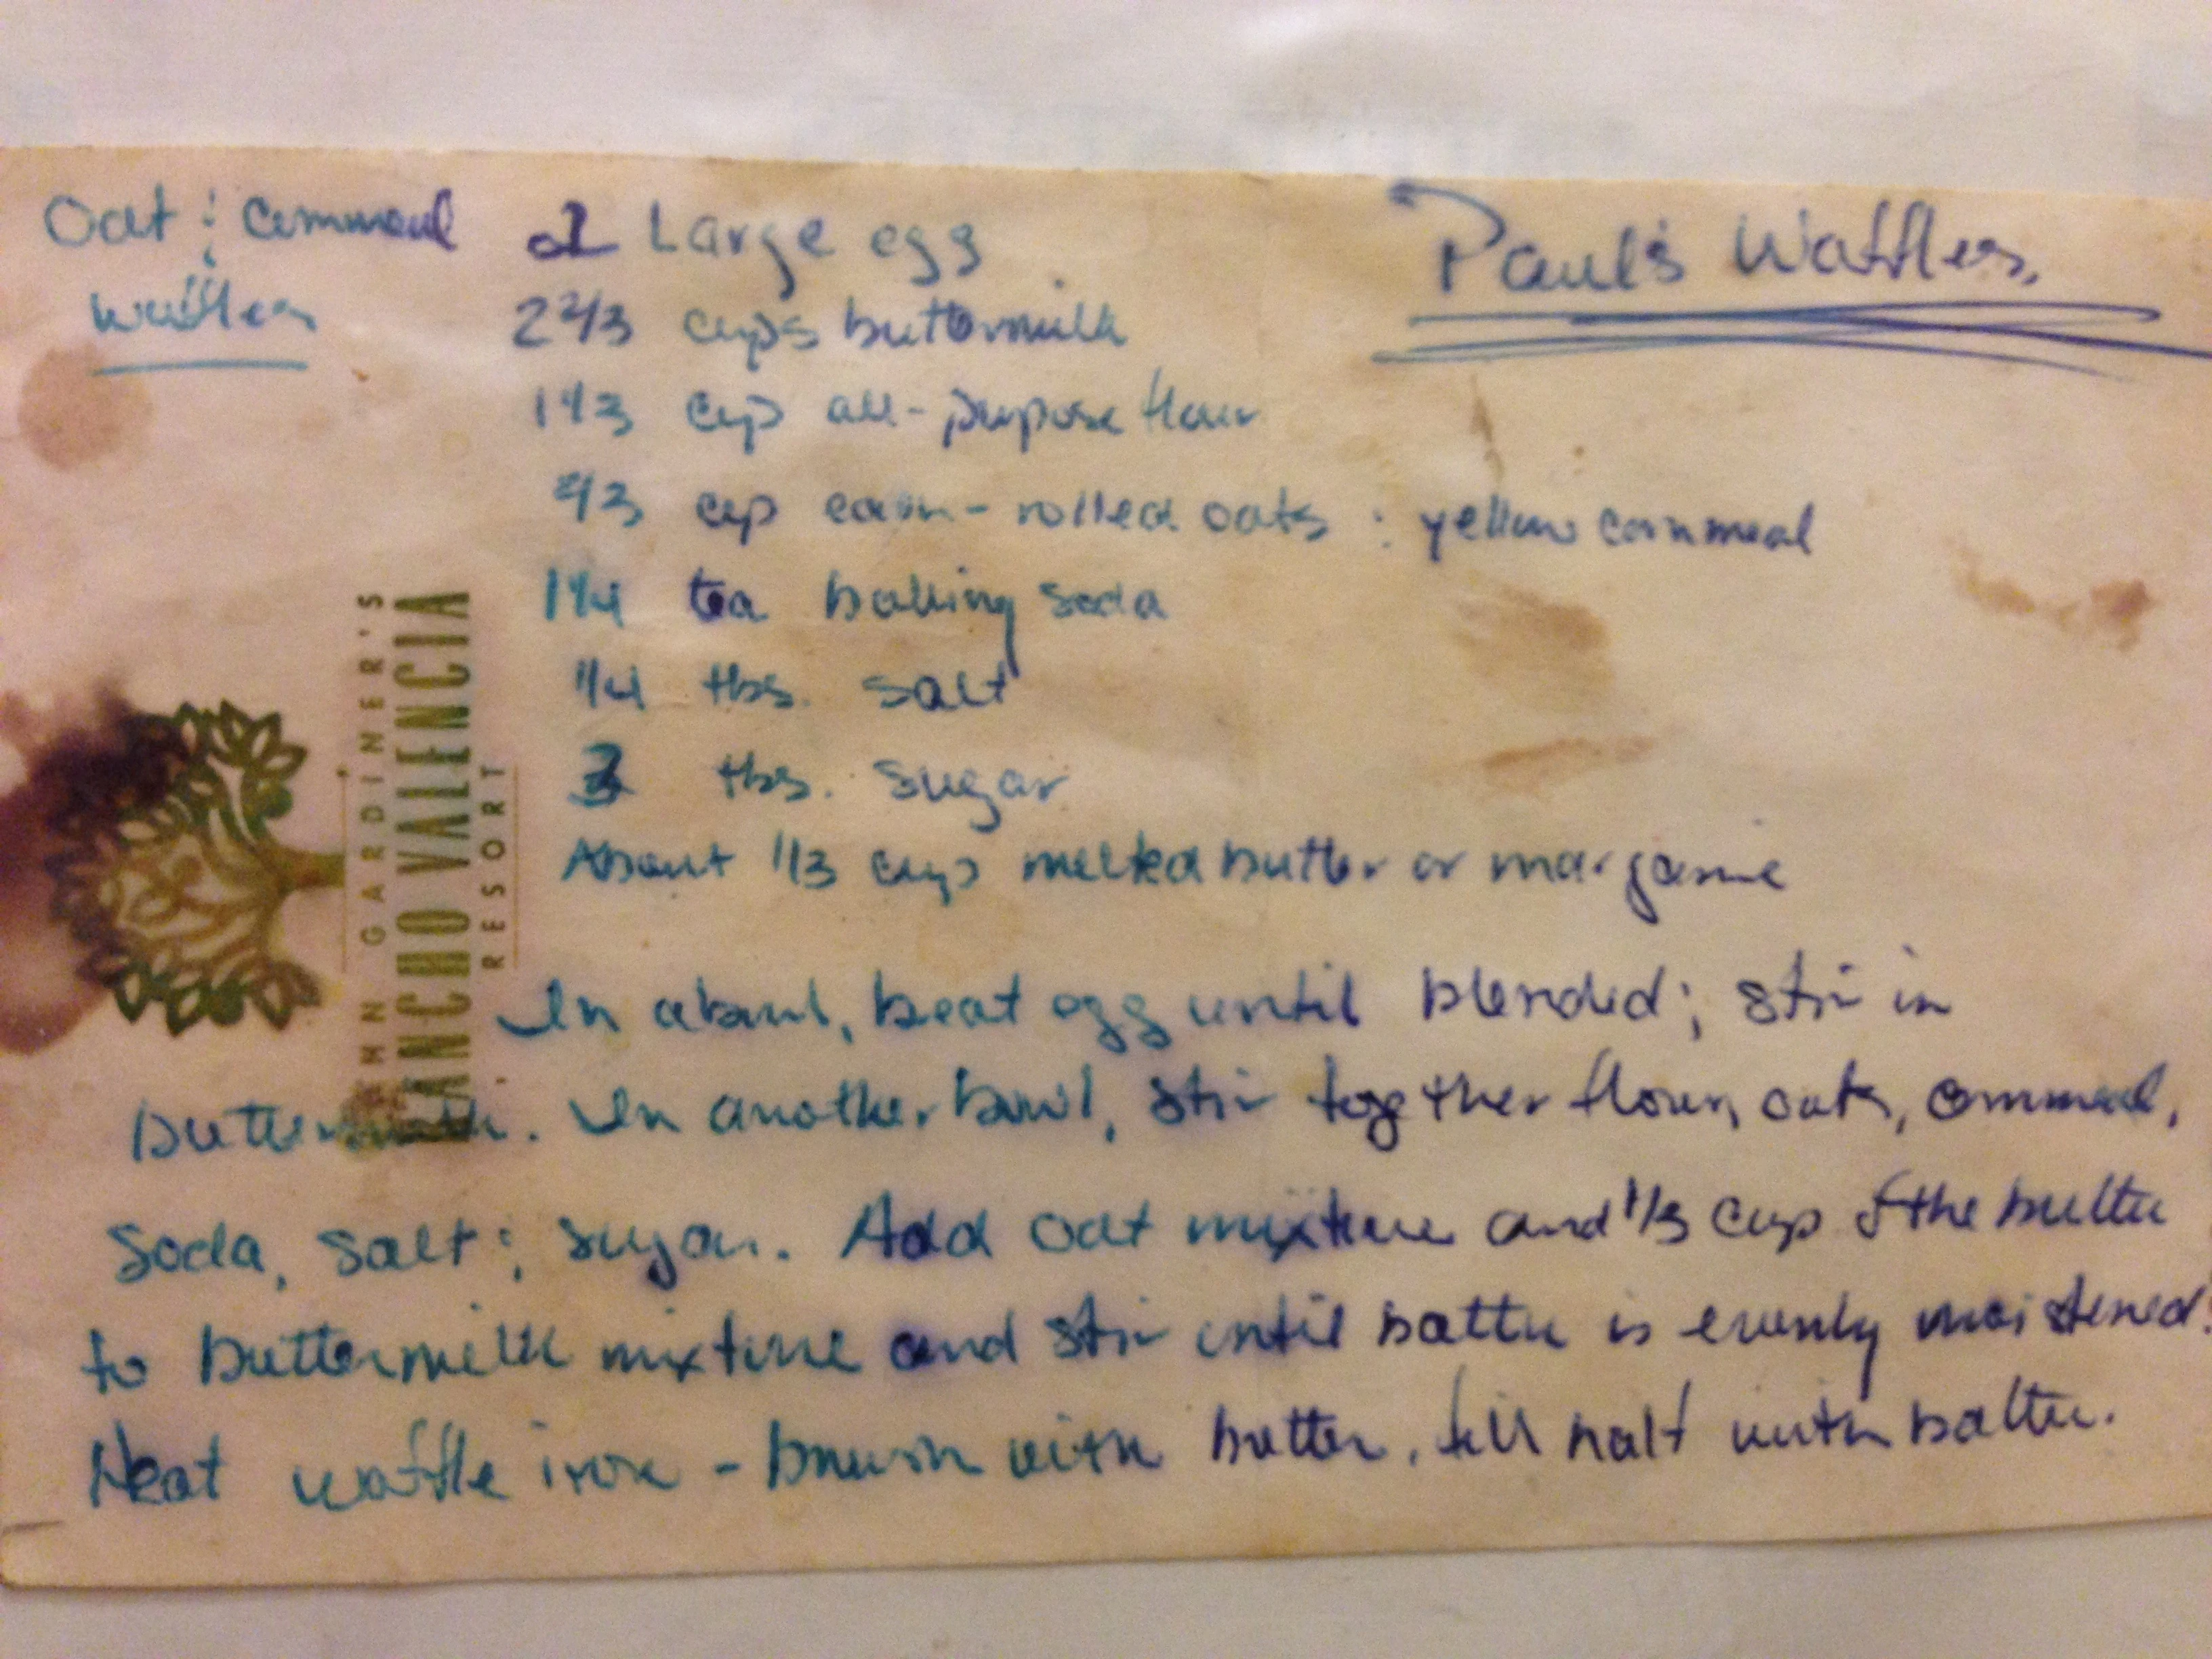 Paul's Waffles.
Oat & Cornmeal
Waffles
Large egg
2 2/3 cups buttermilk
1 1/3 cup all-purpose flour
2/3 cup each - rolled oats & yellow cornmeal
1 1/4 tea baking soda
1/4 tbs. salt
tbs. sugar
About 1/3 cup melted butter or margarine
In a bowl, beat egg until blended; stir in
buttermilk. In another bowl, stir together flour, oats, cornmeal,
soda, salt & sugar. Add oat mixture and 1/3 cup of the butter
to buttermilk mixture and stir until batter is evenly moistened.
Heat waffle iron - brush with butter, fill half with batter.
HN GARDINER'S
RANCHO VALENCIA
RESORT